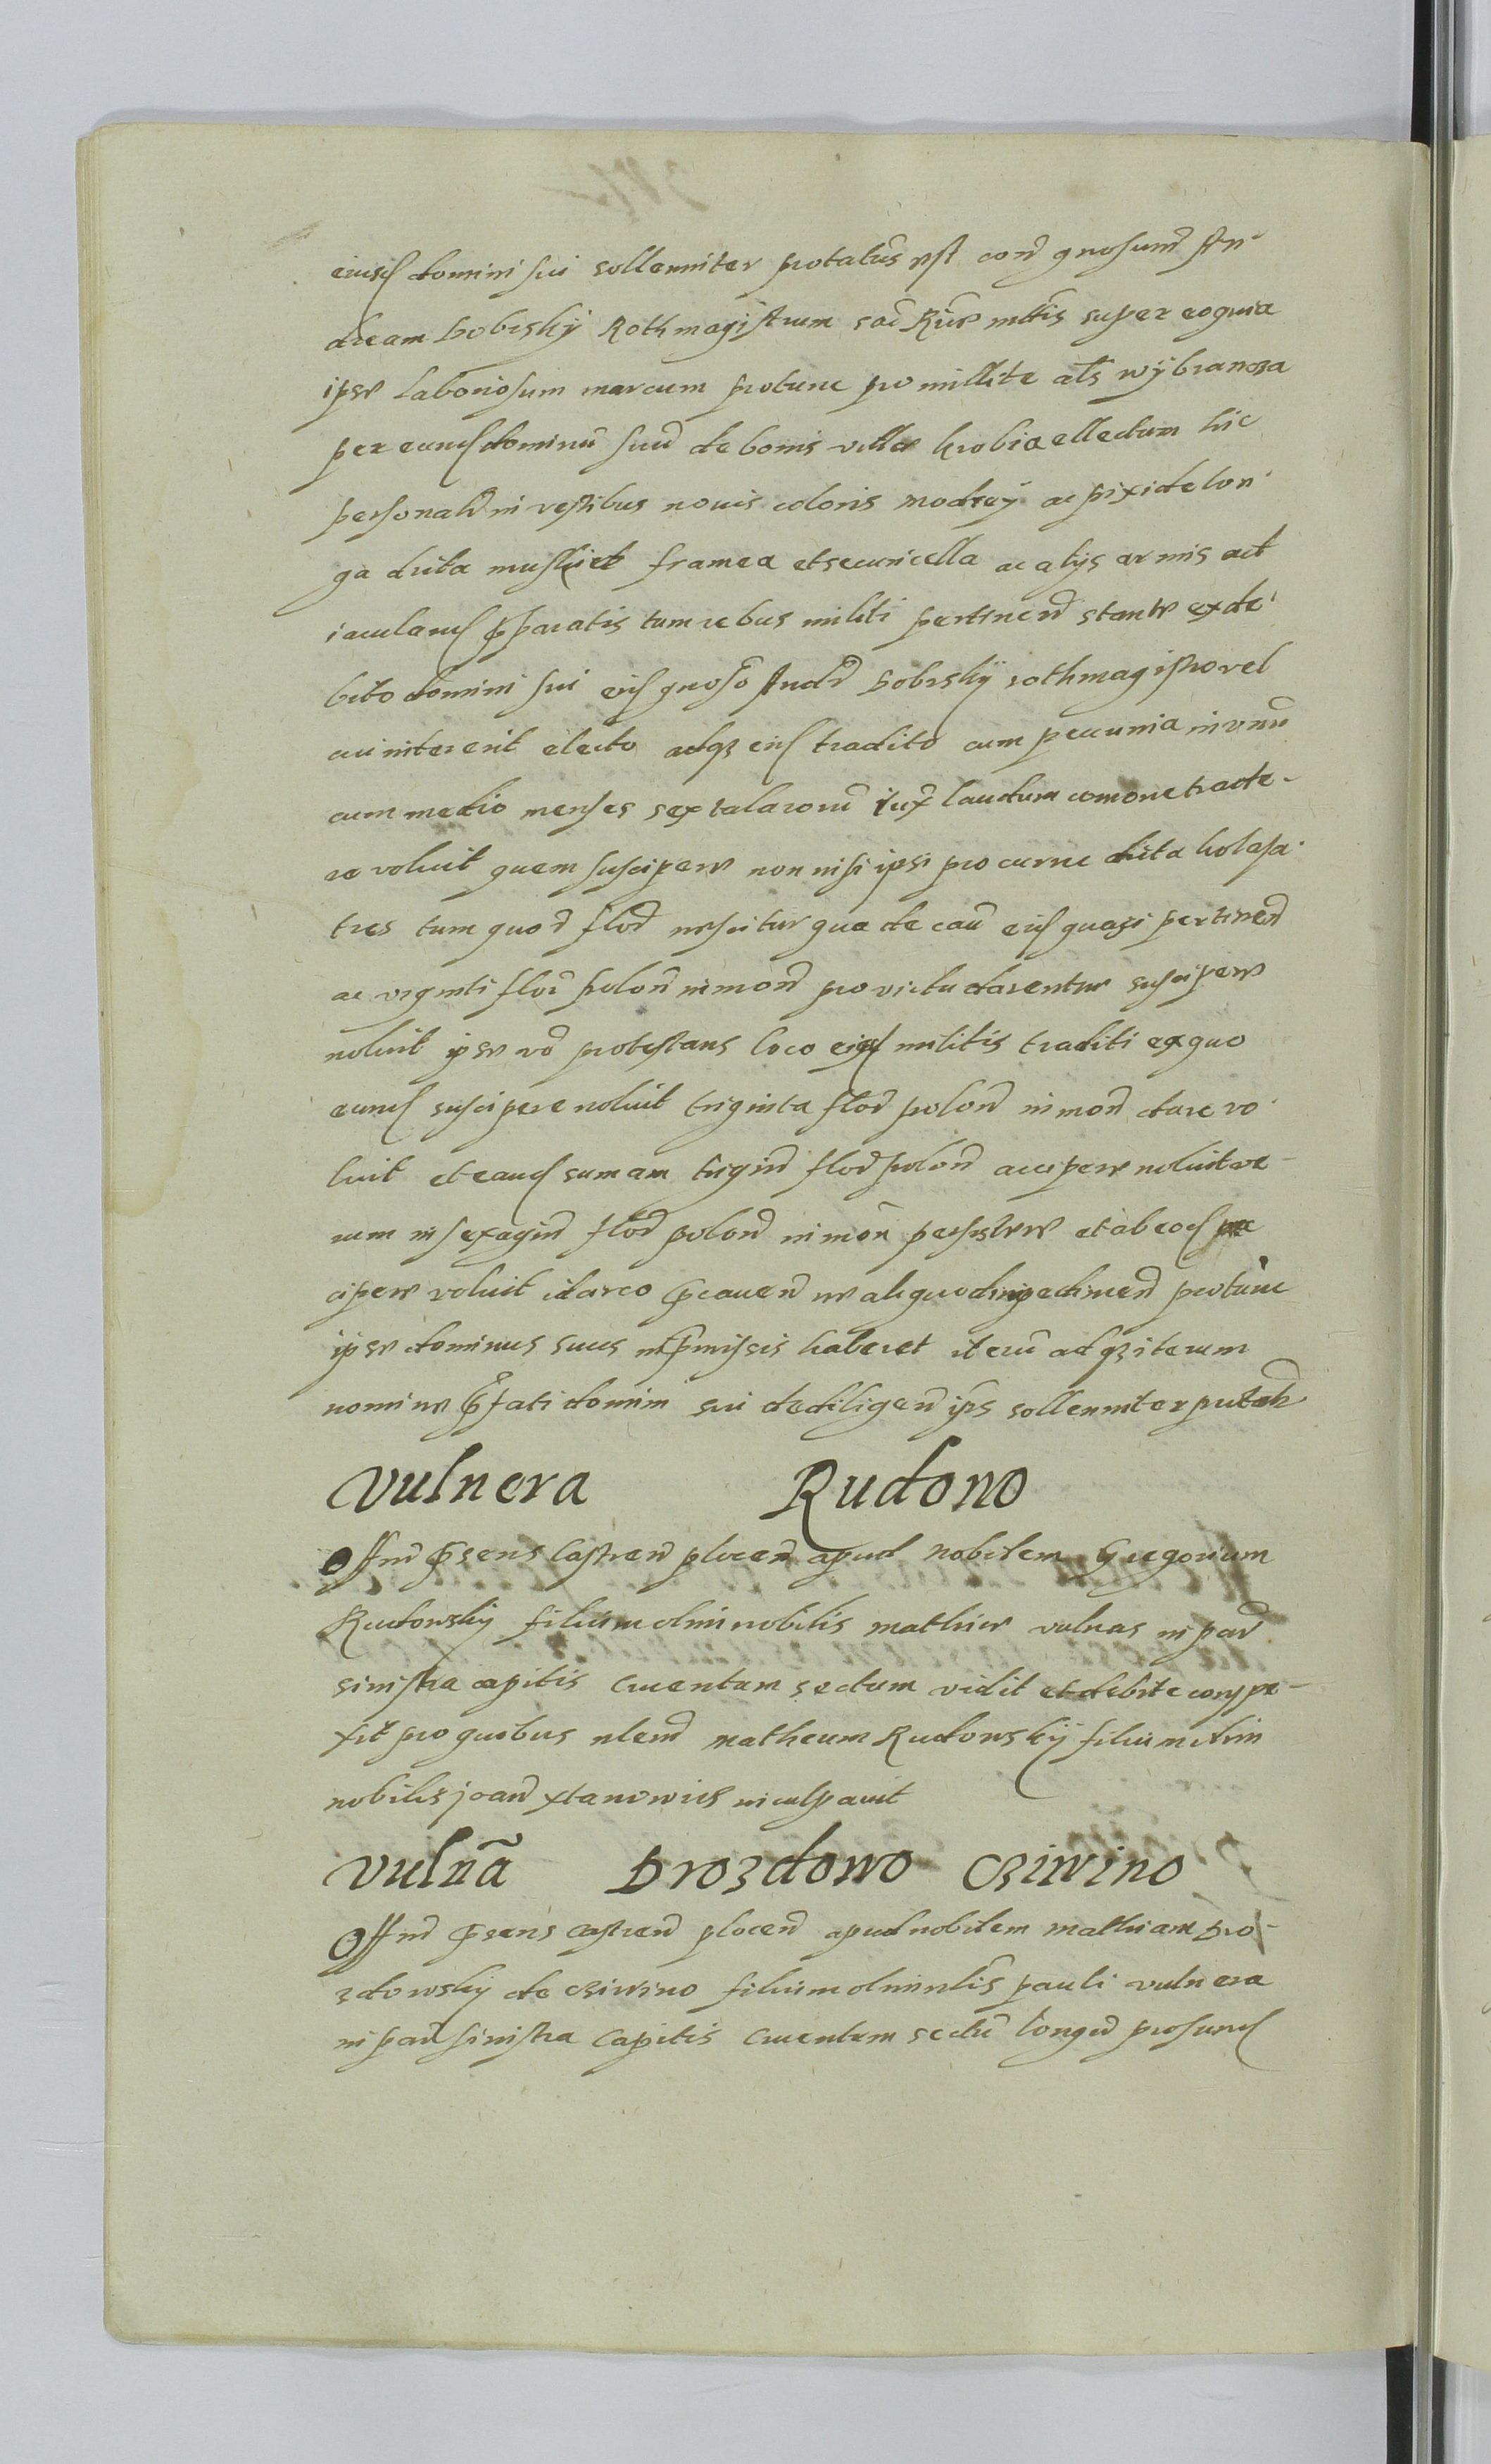 eiusd domini sui sollemniter protatus est cord gnosum An
dream Dobrsky Rothmagistrum sac Rae mttis super eo quia
ipse laboriosum marcum protunc pro millite als wybranoza
per eund dominu suu de bonis ville krobia ellectum hic
personalr in vestibus novis coloris modrey ac pixide lon
ga dicta musskiet framea et securicella ac alys armis ad
iaculand pparatis tum rebus militi pertinen stante ex de
bito domini sui eid gnoso Andr Dobrsky rothmagistro vel
cui intererit electo adqz eid tradito cum pecunia in vnu
cum medio menses sex talaroru iux laudum comone tracte
re voluit quem suscipere non nisi ipsi pro curru dicta kolassa
tres tum quod flor nescitur qua de cau eid quasi pertinen
ac viginti flor polon in mon pro victu darentur suscipere
noluit ipse vo protestans loco eiusd militis traditi ex quo
eund suscipere noluit triginta flor polon in mon dare vo
luit et eand sumam trigin flor polon accipere noluit ve
rum in sexagin flor polon in mon persistere et ab eod
cipere voluit idarco pcauen ne aliquod impedimen protunc
ipse dominus suus in pmissis haberet iteru adqz iterum
nomine pfati domini sui de diligen ips sollemniter
Vulnera Rudowo
Offm psens Castren plocen apud nobilem Gregorium
Rudowsky filium olim nobilis mathie vulnus in par
sinistra capitis cruentum sectum vidit et debite conspe
xit pro quibus nlem matheum Rudowsky filium olim
nobilis joan inculpauit
Vulna Drozdowo Cziwino
Offm psens castren plocen apud nobilem mathiam Dro
zdowsky de Cziwino filium olim nlis pauli vulnera
in par sinistra capitis cruentum sectu longu profund